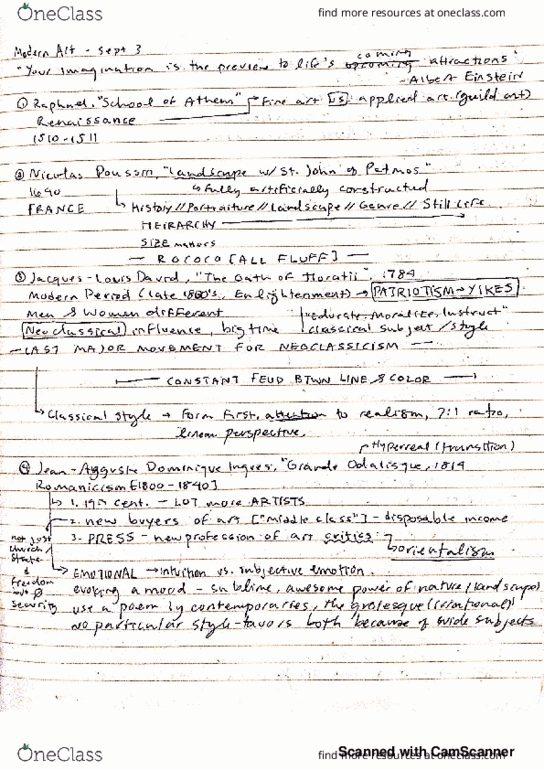 OneClass
find more resources at oneclass.com
Modern Art - Sept 3
coming
"Your imagination is the preview to life's upcoming attractions"
- Albert Einstein
① Raphael, "School of Athens" Fine art vs applied art (guild art)
Renaissance
1510-1511
② Nicolas Poussin, "Landscape w/ St. John of Patmos"
1640 fully artificially constructed
FRANCE History//Portraiture//Landscape//Genre//Still Life
HEIRARCHY
SIZE matters
— ROCOCO [ALL FLUFF] —
③ Jacques-Louis David, "The Oath of Horatii", 1784
Modern Period (late 1800's, Enlightenment) → PATRIOTISM → YIKES
Men & Women different "educate, moralize, instruct"
Neoclassical influence, big time classical subject/style
- LAST MAJOR MOVEMENT FOR NEOCLASSICISM -
CONSTANT FEUD BTWN LINE & COLOR
Classical style → form first, attention to realism, 7:1 ratio,
linear perspective,
Hyperreal (transition)
④ Jean-Auguste Dominique Ingres, "Grande Odalisque, 1814
Romanicism [1800-1840]
1. 19th cent. - LOT more ARTISTS
2. new buyers of art ["middle class"] - disposable income
not just church/state
3. PRESS - new profession of art critics
orientalism
& freedom w/o security
EMOTIONAL → intuition vs. subjective emotion
evoking a mood - sublime, awesome power of nature/landscape)
use a poem by contemporaries, the grotesque (irrational)
no particular style - favors both because of wide subjects
OneClass
find more resources at oneclass.com
Scanned with CamScanner